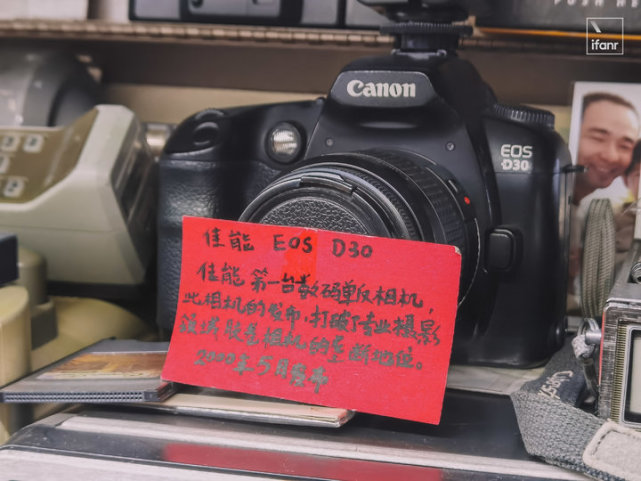 ifanr
Canon
EOS
D30
佳能 EOS D30
佳能第一台数码单反相机,
此相机的发布,打破了专业摄影
领域胶卷相机的垄断地位。
2000年5月发布
Canon